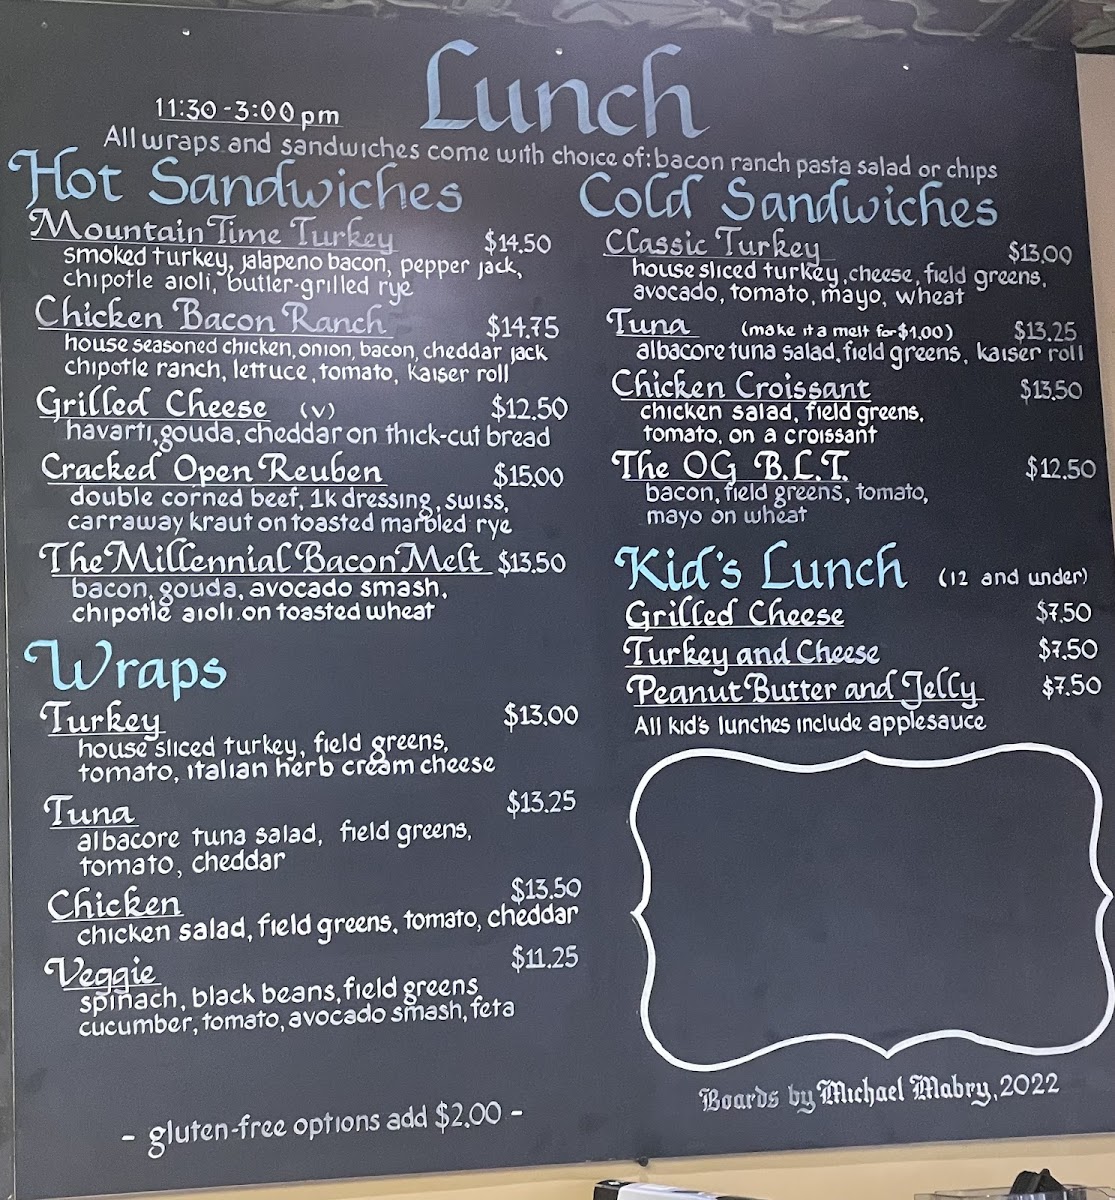 Lunch
11:30-3:00 pm
All wraps and sandwiches come with choice of: bacon ranch pasta salad or chips
Hot Sandwiches
Mountain Time Turkey $14.50
smoked turkey, jalapeno bacon, pepper jack,
chipotle aioli, butter-grilled rye
Chicken Bacon Ranch $14.75
house seasoned chicken, onion, bacon, cheddar jack
chipotle ranch, lettuce, tomato, kaiser roll
Grilled Cheese (v) $12.50
havarti, gouda, cheddar on thick-cut bread
Cracked Open Reuben $15.00
double corned beef, 1k dressing, swiss,
carraway kraut on toasted marbled rye
The Millennial Bacon Melt $13.50
bacon, gouda, avocado smash,
chipotle aioli on toasted wheat
Wraps
Turkey $13.00
house sliced turkey, field greens,
tomato, italian herb cream cheese
Tuna $13.25
albacore tuna salad, field greens,
tomato, cheddar
Chicken $13.50
chicken salad, field greens, tomato, cheddar
Veggie $11.25
spinach, black beans, field greens
cucumber, tomato, avocado smash, feta
- gluten-free options add $2.00 -
Cold Sandwiches
Classic Turkey $13.00
house sliced turkey, cheese, field greens,
avocado, tomato, mayo, wheat
Tuna (make it a melt for $1.00) $13.25
albacore tuna salad, field greens, kaiser roll
Chicken Croissant $13.50
chicken salad, field greens,
tomato, on a croissant
The OG B.L.T. $12.50
bacon, field greens, tomato,
mayo on wheat
Kid's Lunch (12 and under)
Grilled Cheese $7.50
Turkey and Cheese $7.50
Peanut Butter and Jelly $7.50
All kid's lunches include applesauce
Boards by Michael Mabry, 2022